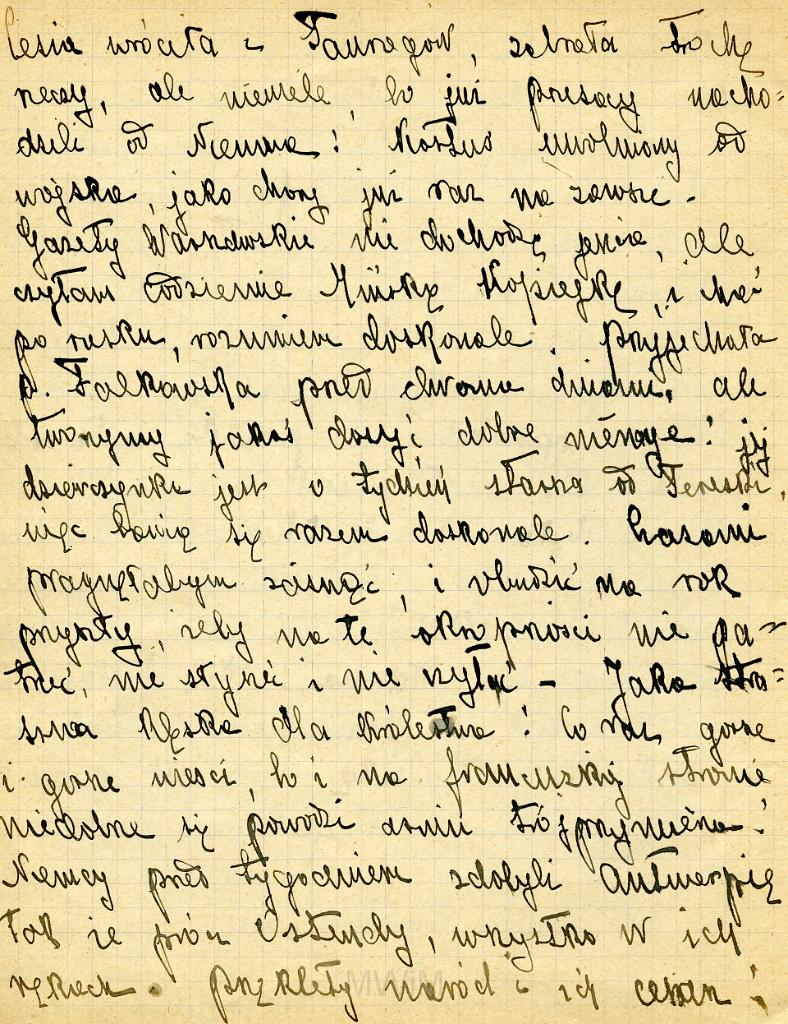 Lesia wróciła z Taurogów, zabrała trochę
rzeczy, ale niewiele, bo już prusacy nacho=
dzili od Niemna! Kostuś uwolniony od
wojska, jako chory już raz na zawsze -
Gazety Warszawskie nie dochodzą jakoś, ale
czytam codziennie Mińską Kopiejkę, i choć
po rusku, rozumiem doskonale. Przyjechała
p. Falkowska przed dwoma dniami, ale
tworzymy jakoś dosyć dobre ménage! jej
dziewczynka jest o tydzień starsza od Tereski,
więc bawią się razem doskonale. Czasami
pragnęłabym zasnąć, i obudzić na rok
przyszły, żeby na te okropności nie pa=
trzeć, nie słyszeć i nie czytać - Jaka stra=
szna klęska dla Królestwa! Co raz gorsze
i gorsze wieści, bo i na francuzkiej stronie
niedobrze się powodzi armii trójprzymierza!
Niemcy przed tygodniem zdobyli Antwerpię
tak że prócz Ostendy, wszystko w ich
rękach. Przeklęty naród i ich cesarz!
MWiM